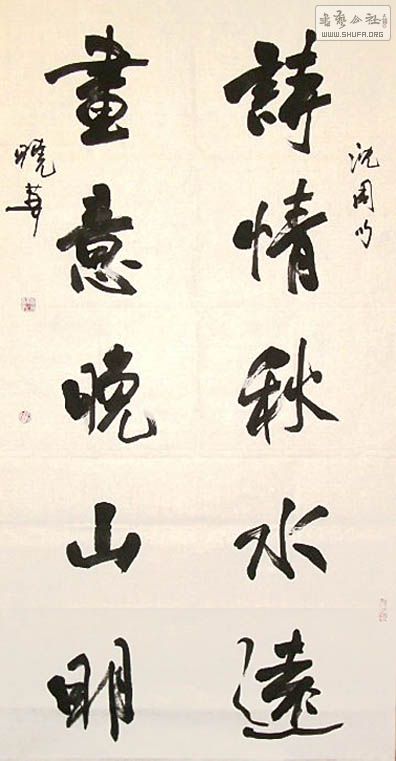 沈周句
詩情秋水遠
畫意晚山明
曉
書藝公社
WWW.SHUFA.ORG